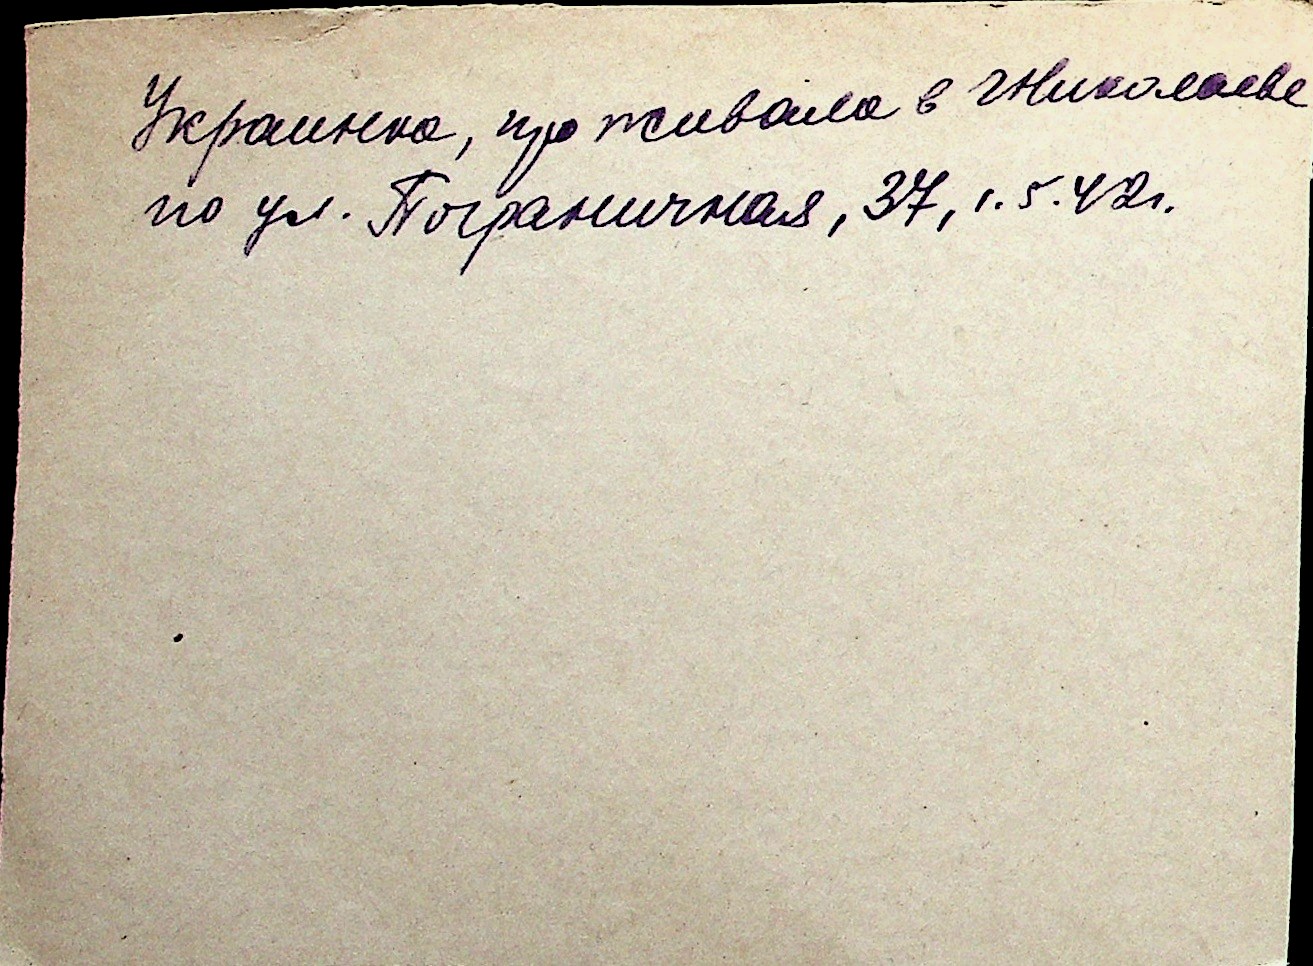 Украинка, проживала в г Николаеве
по ул. Пограничная, 37, 1.5.42г.